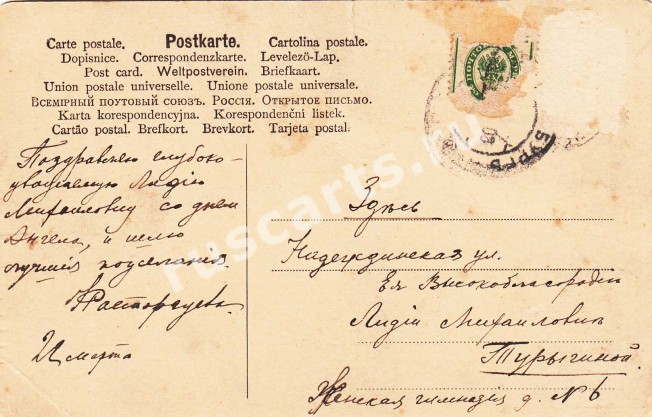 Carte postale. Postkarte. Cartolina postale.
Dopisnice. Correspondenzkarte. Levelező-Lap.
Post card. Weltpostverein. Briefkaart.
Union postale universelle. Unione postale universale.
Всемірный почтовый союзъ. Россія. Открытое письмо.
Karta korespondencyjna. Korespondenční listek.
Cartão postal. Brefkort. Brevkort. Tarjeta postal.
Поздравляю глубоко-
уважаемую Лидію
Михайловну со днем
Ангела, и шлю
лучшія пожелания.
Расторгуева
марта
Здѣсь
Надеждинская ул.
Ея Высокоблагородію
Лидіи Михайловнѣ
Турыгиной
Женская гимназія д. № 6
БУРГЪ
ruscarts.ru